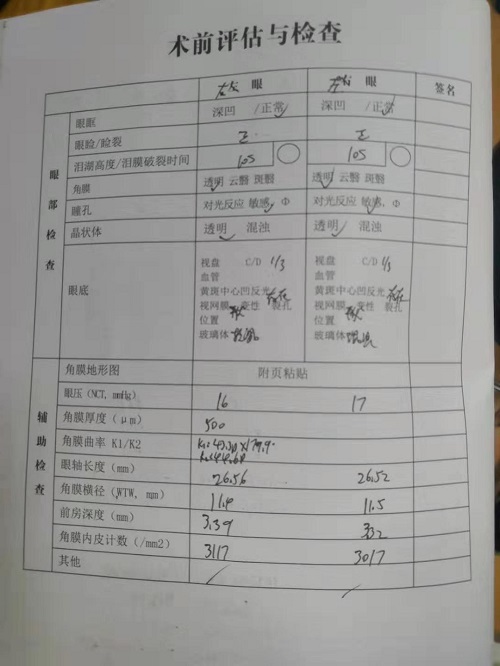 术前评估与检查
眼 眼 签名
眼部检查
眼眶 深凹 /正常 深凹 /正常
眼睑/睑裂 正 正
泪湖高度/泪膜破裂时间 10s 10s
角膜 透明 云翳 斑翳 透明 云翳 斑翳
瞳孔 对光反应 敏感、Φ 对光反应 敏感、Φ
晶状体 透明 混浊 透明 混浊
眼底
视盘 C/D 1/3 视盘 C/D 1/3
血管 血管
黄斑中心凹反光 存在 黄斑中心凹反光 存在
视网膜 变性 裂孔 视网膜 变性 裂孔
位置 位置
玻璃体 玻璃体
辅助检查
角膜地形图 附页粘贴
眼压(NCT, mmHg) 16 17
角膜厚度(μm) 500
角膜曲率 K1/K2
眼轴长度(mm) 26.56 26.52
角膜横径(WTW, mm) 11.4 11.5
前房深度(mm) 3.39 3.32
角膜内皮计数(/mm2) 3117 3017
其他 / /